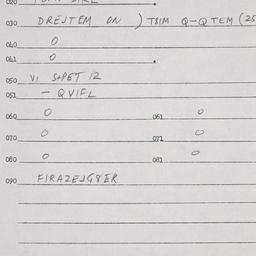 020
030 DREJTEM ON ) TSIM Q-Q TEM (25
040 0
041 0
050 VI SAPET 12
051 - QVIFL
060 0 061 0
070 0 071 0
080 0 081 0
090 FIRAZEJGSER